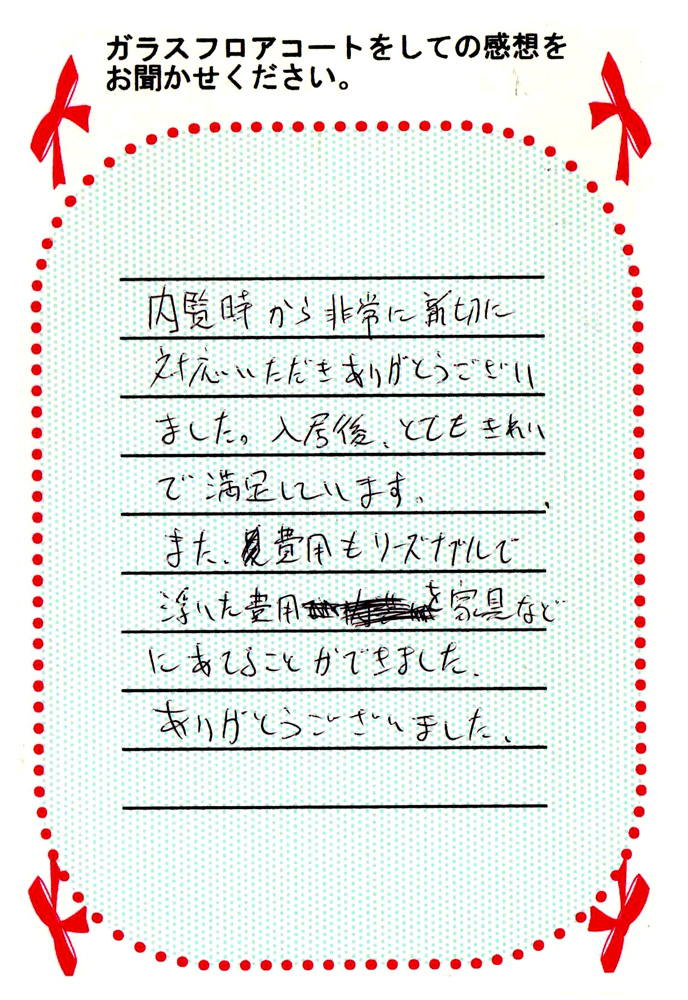 ガラスフロアコートをしての感想を
お聞かせください。
内覧時から非常に親切に
対応いただきありがとうござい
ました。入居後、とてもきれい
で満足しています。
また、費用もリーズナブルで
浮いた費用を家具など
にあてることができました。
ありがとうございました。